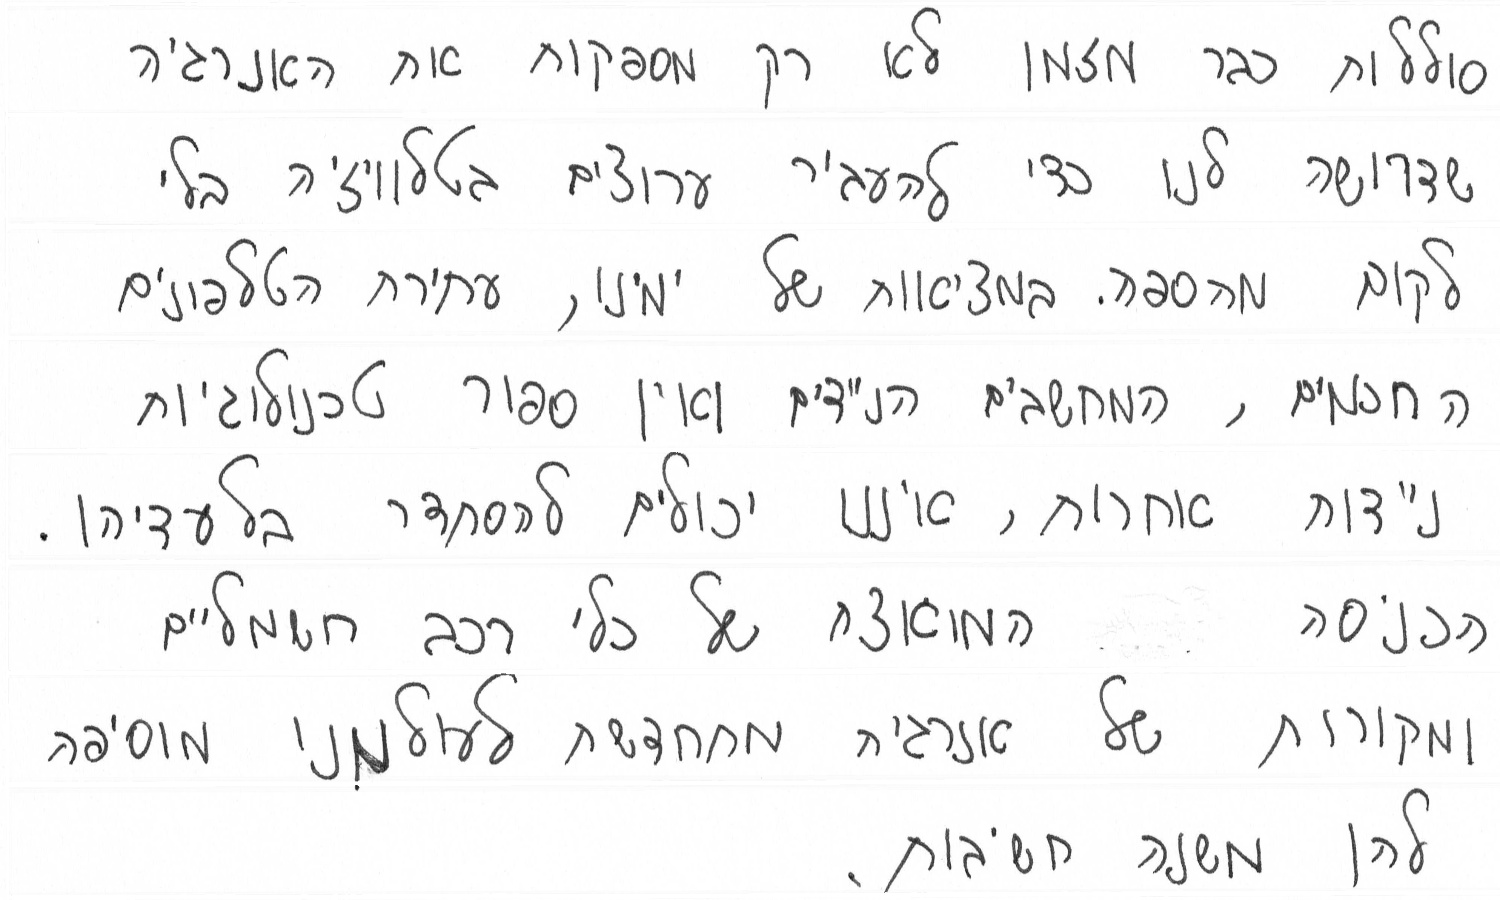 סוללות כבר מזמן לא רק מספקות את האנרגיה
שדרושה לנו כדי להעביר ערוצים בטלוויזיה בלי
לקום מהספה. במציאות של ימינו, עתירת הטלפונים
החכמים, המחשבים הניידים ואין ספור טכנולוגיות
ניידות אחרות, איננו יכולים להסתדר בלעדיהן.
הכניסה המואצת של כלי רכב חשמליים
ומקורות של אנרגיה מתחדשת לעולמנו מוסיפה
להן משנה חשיבות.